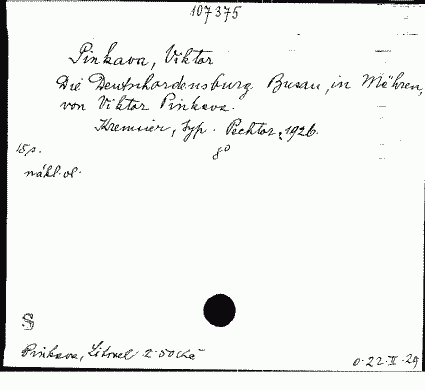 107375
Pinkava, Viktor
Die Deutschordensburg Busau, in Mähren,
von Viktor Pinkava.
Kremsier, typ. Pechtor, 1926.
15 p. 8°
nákl. vl.
S
Pinkava, Litovel 2.50 Kč
0. 22. II. 29